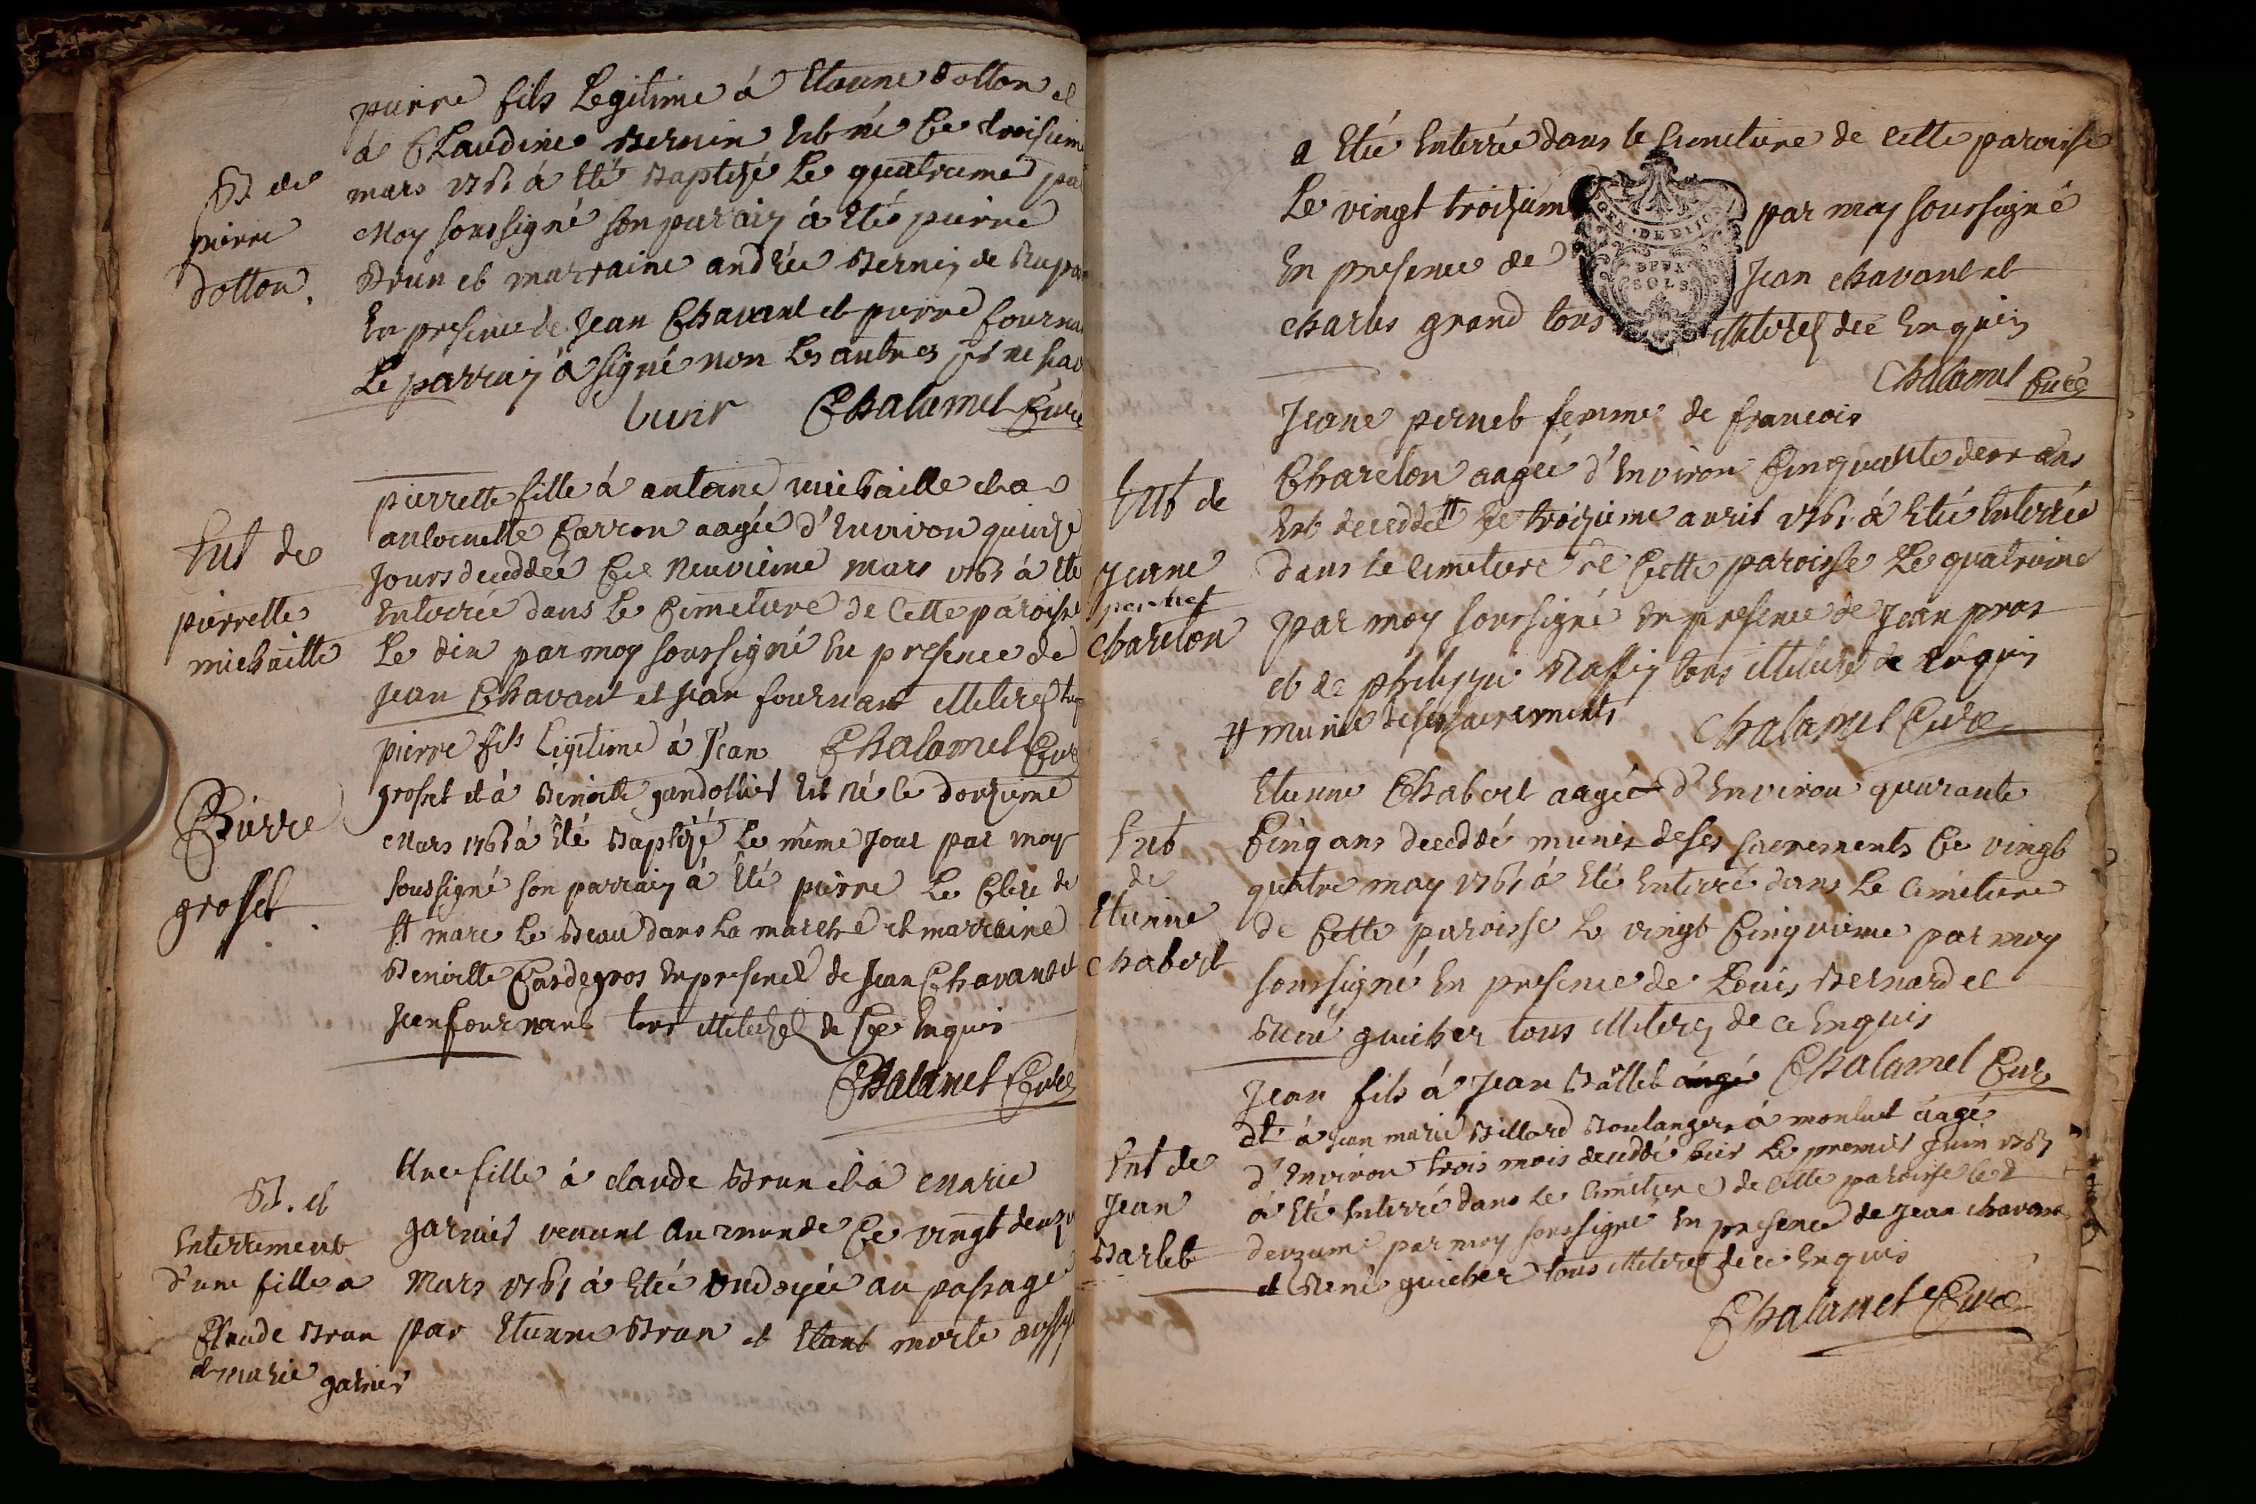 Bt de
pierre
dotton.
pierre fils Legitime à Etienne dotton et
à Claudine Bernin est né Ce troisieme
mars 1761 à Eté Baptizé Le quatrieme par
Moy soussigné son parain à Eté pierre
Brun et marraine andrée Bernin de
En presence de Jean Chavant et pierre fournant
Le parrain à signé non Les autres pr ne scav
oir Chalamel Curé
Ent de
pierrette
michaille
pierrette fille à antoine michaille et a
antoinette Carron aagée d'Environ quinze
Jours decedée Ce Neuvieme mars 1761 à Eté
Enterrée dans Le Cimetiere de Cette paroisse
Le dix par moy soussigné En presence de
Jean Chavant et Jean fournant illiterez
Chalamel Curé
Pierre
grosset
pierre fils Legitime à Jean
grosset et à Benoite gandollier Est Né le douzieme
Mars 1761 à Eté Baptizé Le même Jour par moy
soussigné son parrain à Eté pierre Le Clere de
St marc Le Beau dans La marche et marraine
Benoitte Casdegros En presence de Jean Chavant et
Jean fournant tous illiterez de Ce Enquis
Chalamel Curé
Bt. et
Enterrement
d'une fille a
Claude Brun
et marie garnier
Une fille à claude Brun et à Marie
garnier venant au monde Ce vingt deuzieme
Mars 1761 à Etée ondoyée au passage
par Etienne Brun et Etant morte aussy
a Etée Enterrée dans le Cimetiere de Cette paroisse
Le vingt troizieme par moy soussigné
En presence de Jean chavant et
charles grand tous illiterez de ce Enquis
GEN. DE DIJON
DEUX
SOLS
Chalamel Curé
Ent de
Jeane
pernet
Chareton
Jeane pernet femme de francois
Chareton aagée d'Environ Cinquante deux ans
Est decedée # Le troizieme avril 1761 à Etée Enterrée
dans Le Cimetiere de Cette paroisse Le quatrieme
par moy soussigné En presence de Jean pras
et de philippe Raffin tous illiterez de ce Enquis
# munie de ses sacrements Chalamel Curé
Ent
de
Etienne
Chabert
Etienne Chabert aagée d'Environ quarante
Cinq ans decedé munis de ses sacrements Ce vingt
quatre may 1761 à Eté Enterré dans Le Cimetiere
de Cette paroisse Le vingt Cinquieme par moy
soussigné En presence de Louis Bernard et
René guicher tous illiterez de ce Enquis
Chalamel Curé
Ent de
Jean
Barlet
Jean fils à Jean Barlet
et à Jean marie Billard Boulanger à monluel aagé
d'Environ trois mois decedé hier Le premier Juin 1761
à Eté Enterré dans Le Cimetiere de Cette paroisse Le
deuzieme par moy soussigné En presence de Jean chavant
et René guicher tous illiterez de ce Enquis
Chalamel Curé